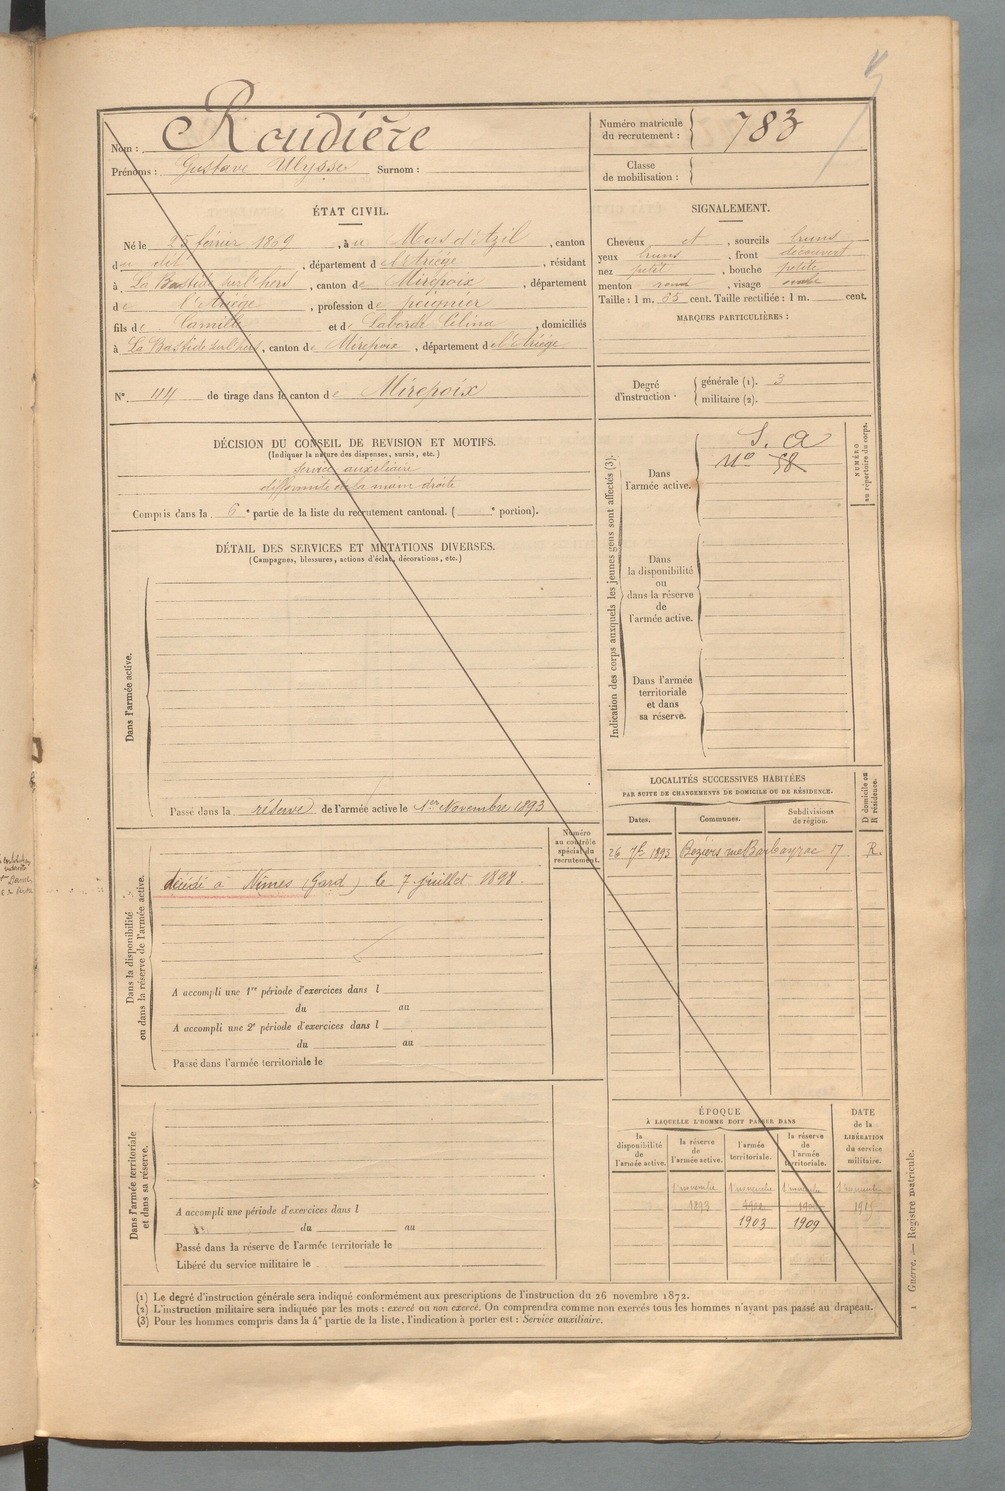 Nom : Roudière
Prénoms : Gustave Ulysse Surnom :
Numéro matricule du recrutement : 783
Classe de mobilisation :
ÉTAT CIVIL.
Né le 25 février 1869, à u Mas d'Azil, canton
du dit, département d e l'Ariège, résidant
à La Bastide sur l'hers, canton de Mirepoix, département
de l'Ariège, profession de peignier
fils de Camille et de Laborde Célina, domiciliés
à La Bastide sur l'hers, canton de Mirepoix, département de l'Ariége
SIGNALEMENT.
Cheveux et, sourcils bruns
yeux bruns, front découvert
nez petit, bouche petite
menton rond, visage
Taille : 1 m. 55 cent. Taille rectifiée : 1 m. cent.
MARQUES PARTICULIÈRES :
N° 44 de tirage dans le canton de Mirepoix
Degré d'instruction . générale (1). 3
militaire (2).
DÉCISION DU CONSEIL DE REVISION ET MOTIFS.
(Indiquer la nature des dispenses, sursis, etc.)
Service auxiliaire
difformité de la main droite
Compris dans la 6e partie de la liste du recrutement cantonal. ( e portion).
DÉTAIL DES SERVICES ET MUTATIONS DIVERSES.
(Campagnes, blessures, actions d'éclat, décorations, etc.)
Dans l'armée active.
Passé dans la réserve de l'armée active le 1er Novembre 1893
Indication des corps auxquels les jeunes gens sont affectés (3).
Dans l'armée active.
S. A
N° 58
NUMÉRO au répertoire du corps.
Dans la disponibilité ou dans la réserve de l'armée active.
Dans l'armée territoriale et dans sa réserve.
LOCALITÉS SUCCESSIVES HABITÉES
PAR SUITE DE CHANGEMENTS DE DOMICILE OU DE RÉSIDENCE.
Dates. Communes. Subdivisions de région. D domicile ou R résidence.
26 7bre 1893 Beziers rue Barbeyrac 17 R.
Numéro au contrôle spécial du recrutement.
Dans la disponibilité ou dans la réserve de l'armée active.
décédé à Nîmes (Gard) le 7 juillet 1898.
A accompli une 1re période d'exercices dans l
du au
A accompli une 2e période d'exercices dans l
du au
Passé dans l'armée territoriale le
Dans l'armée territoriale et dans sa réserve.
A accompli une période d'exercices dans l
du au
Passé dans la réserve de l'armée territoriale le
Libéré du service militaire le
ÉPOQUE
À LAQUELLE L'HOMME DOIT PASSER DANS
la disponibilité de l'armée active. la réserve de l'armée active. l'armée territoriale. la réserve de l'armée territoriale.
DATE de la LIBÉRATION du service militaire.
1 novembre 1 novembre 1 novembre 1 novembre
1893 1915
1903 1909
(1) Le degré d'instruction générale sera indiqué conformément aux prescriptions de l'instruction du 26 novembre 1872.
(2) L'instruction militaire sera indiquée par les mots : exercé ou non exercé. On comprendra comme non exercés tous les hommes n'ayant pas passé au drapeau.
(3) Pour les hommes compris dans la 4e partie de la liste, l'indication à porter est : Service auxiliaire.
1 Guerre. — Registre matricule.